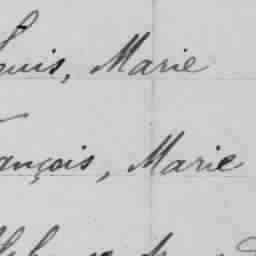 Louis, Marie
François, Marie